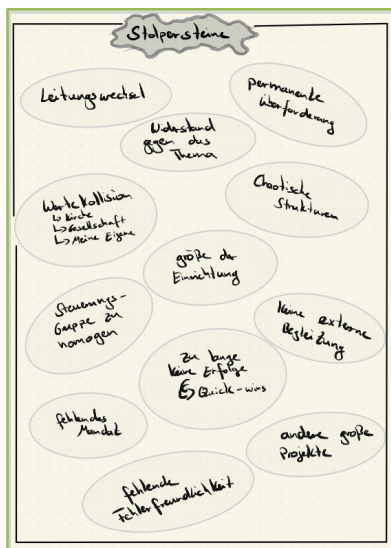 Stolpersteine
Leitungswechsel
permanente
Überforderung
Widerstand
gegen das
Thema
Wertekollision
↳ Kirche
↳ Gesellschaft
↳ Meine Eigene
Chaotische
Strukturen
größe der
Einrichtung
Steuerungs-
Gruppe zu
homogen
keine externe
Begleitung
zu lange
keine Erfolge
↳ Quick-wins
fehlendes
Mandat
andere große
Projekte
fehlende
Fehlerfreundlichkeit